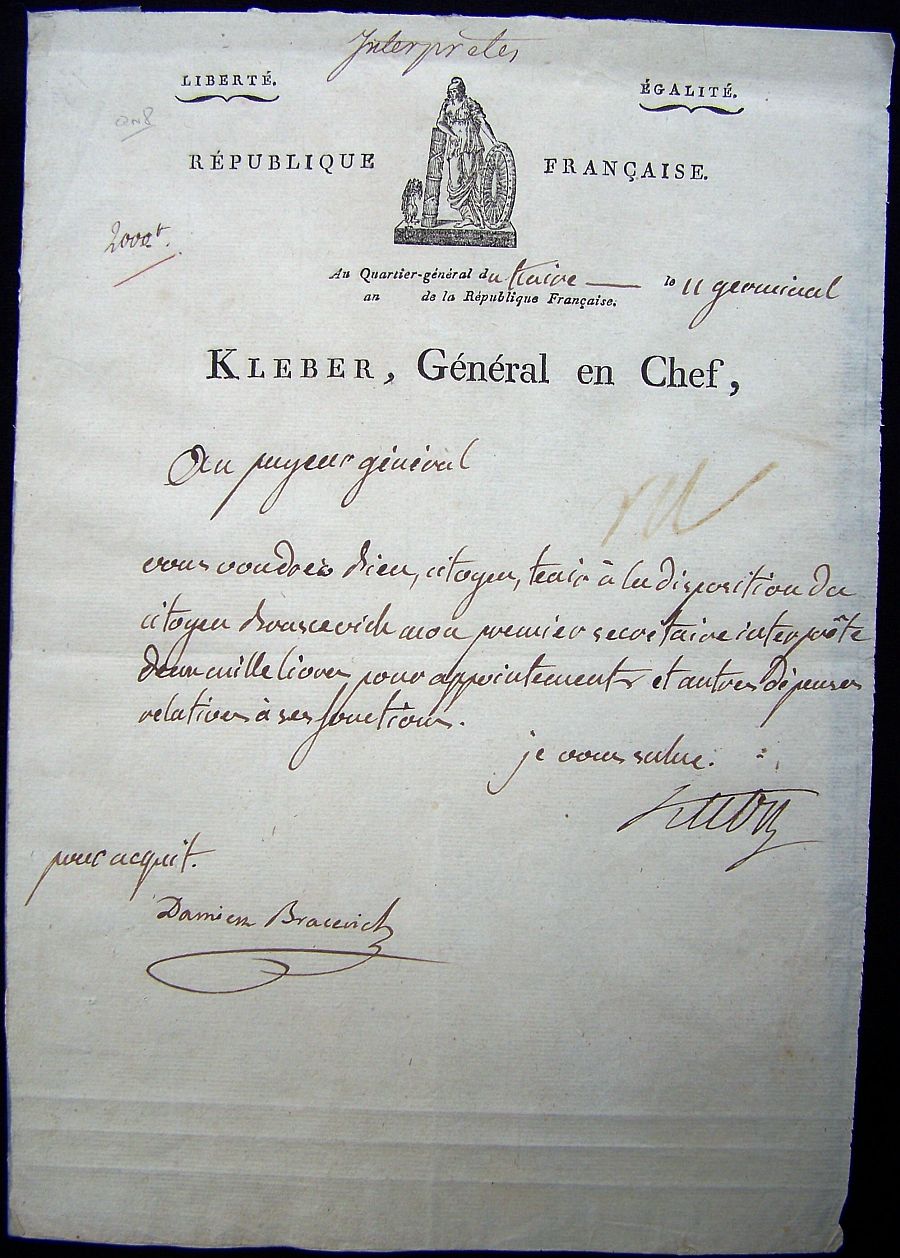 Interprètes
LIBERTÉ. ÉGALITÉ.
RÉPUBLIQUE FRANÇAISE.
2000tt.
Au Quartier-général du Kaire le 11 germinal
an de la République Française.
KLEBER, Général en Chef,
Au payeur général
vous voudrés bien, citoyen, tenir à la disposition du
citoyen mon premier secrétaire interprête
deux mille livres pour appointements et autres dépenses
relatives à ses fonctions.
je vous salue.
Kleber
pour acquit.
Damien Bracevich